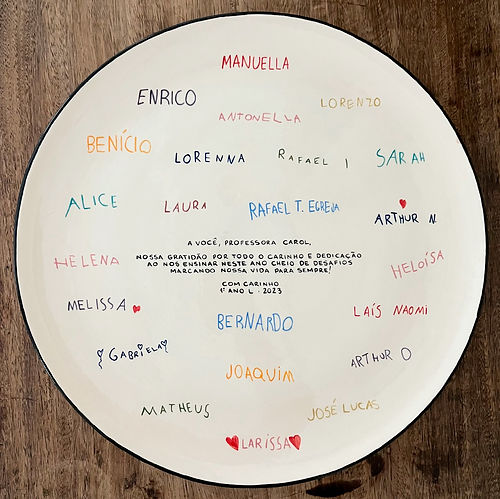 MANUELLA
ENRICO
LORENZO
ANTONELLA
BENÍCIO
LORENNA
RAFAEL I
SARAH
ALICE
LAURA
RAFAEL T. EGREJA
ARTHUR N.
A VOCÊ, PROFESSORA CAROL,
NOSSA GRATIDÃO POR TODO O CARINHO E DEDICAÇÃO
AO NOS ENSINAR NESTE ANO CHEIO DE DESAFIOS
MARCANDO NOSSA VIDA PARA SEMPRE!
COM CARINHO
1º ANO L - 2023
HELENA
HELOÍSA
MELISSA
BERNARDO
LAÍS NAOMI
GABRIELA
ARTHUR O
JOAQUIM
MATHEUS
JOSÉ LUCAS
LARISSA